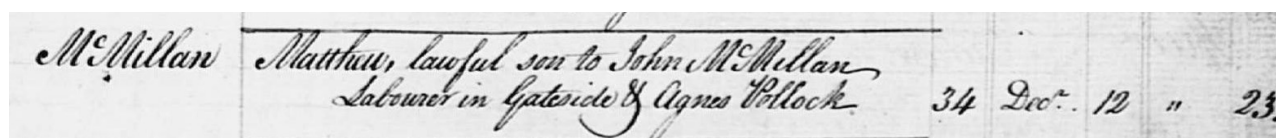 McMillan Matthew, lawful son to John McMillan
Labourer in Gateside & Agnes Pollock 34 Decr. 12 " 23